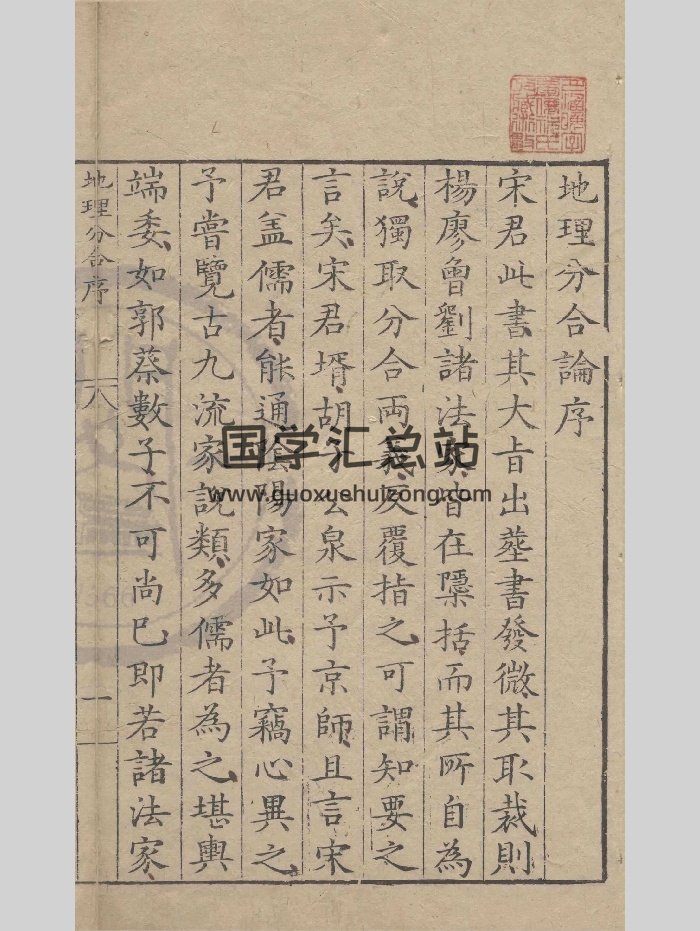 地理分合論序
宋君此書其大旨出葬書發微其取裁則
楊廖曾劉諸法家皆在櫽括而其所自為
說獨取分合兩義反覆指之可謂知要之
言矣宋君壻胡子公泉示予京師且言宋
君葢儒者能通陰陽家如此予竊心異之
予嘗覽古九流家說類多儒者為之堪輿
端委如郭蔡數子不可尚巳即若諸法家
地理分合序
一
国学汇总站
www.guoxuehuizong.com